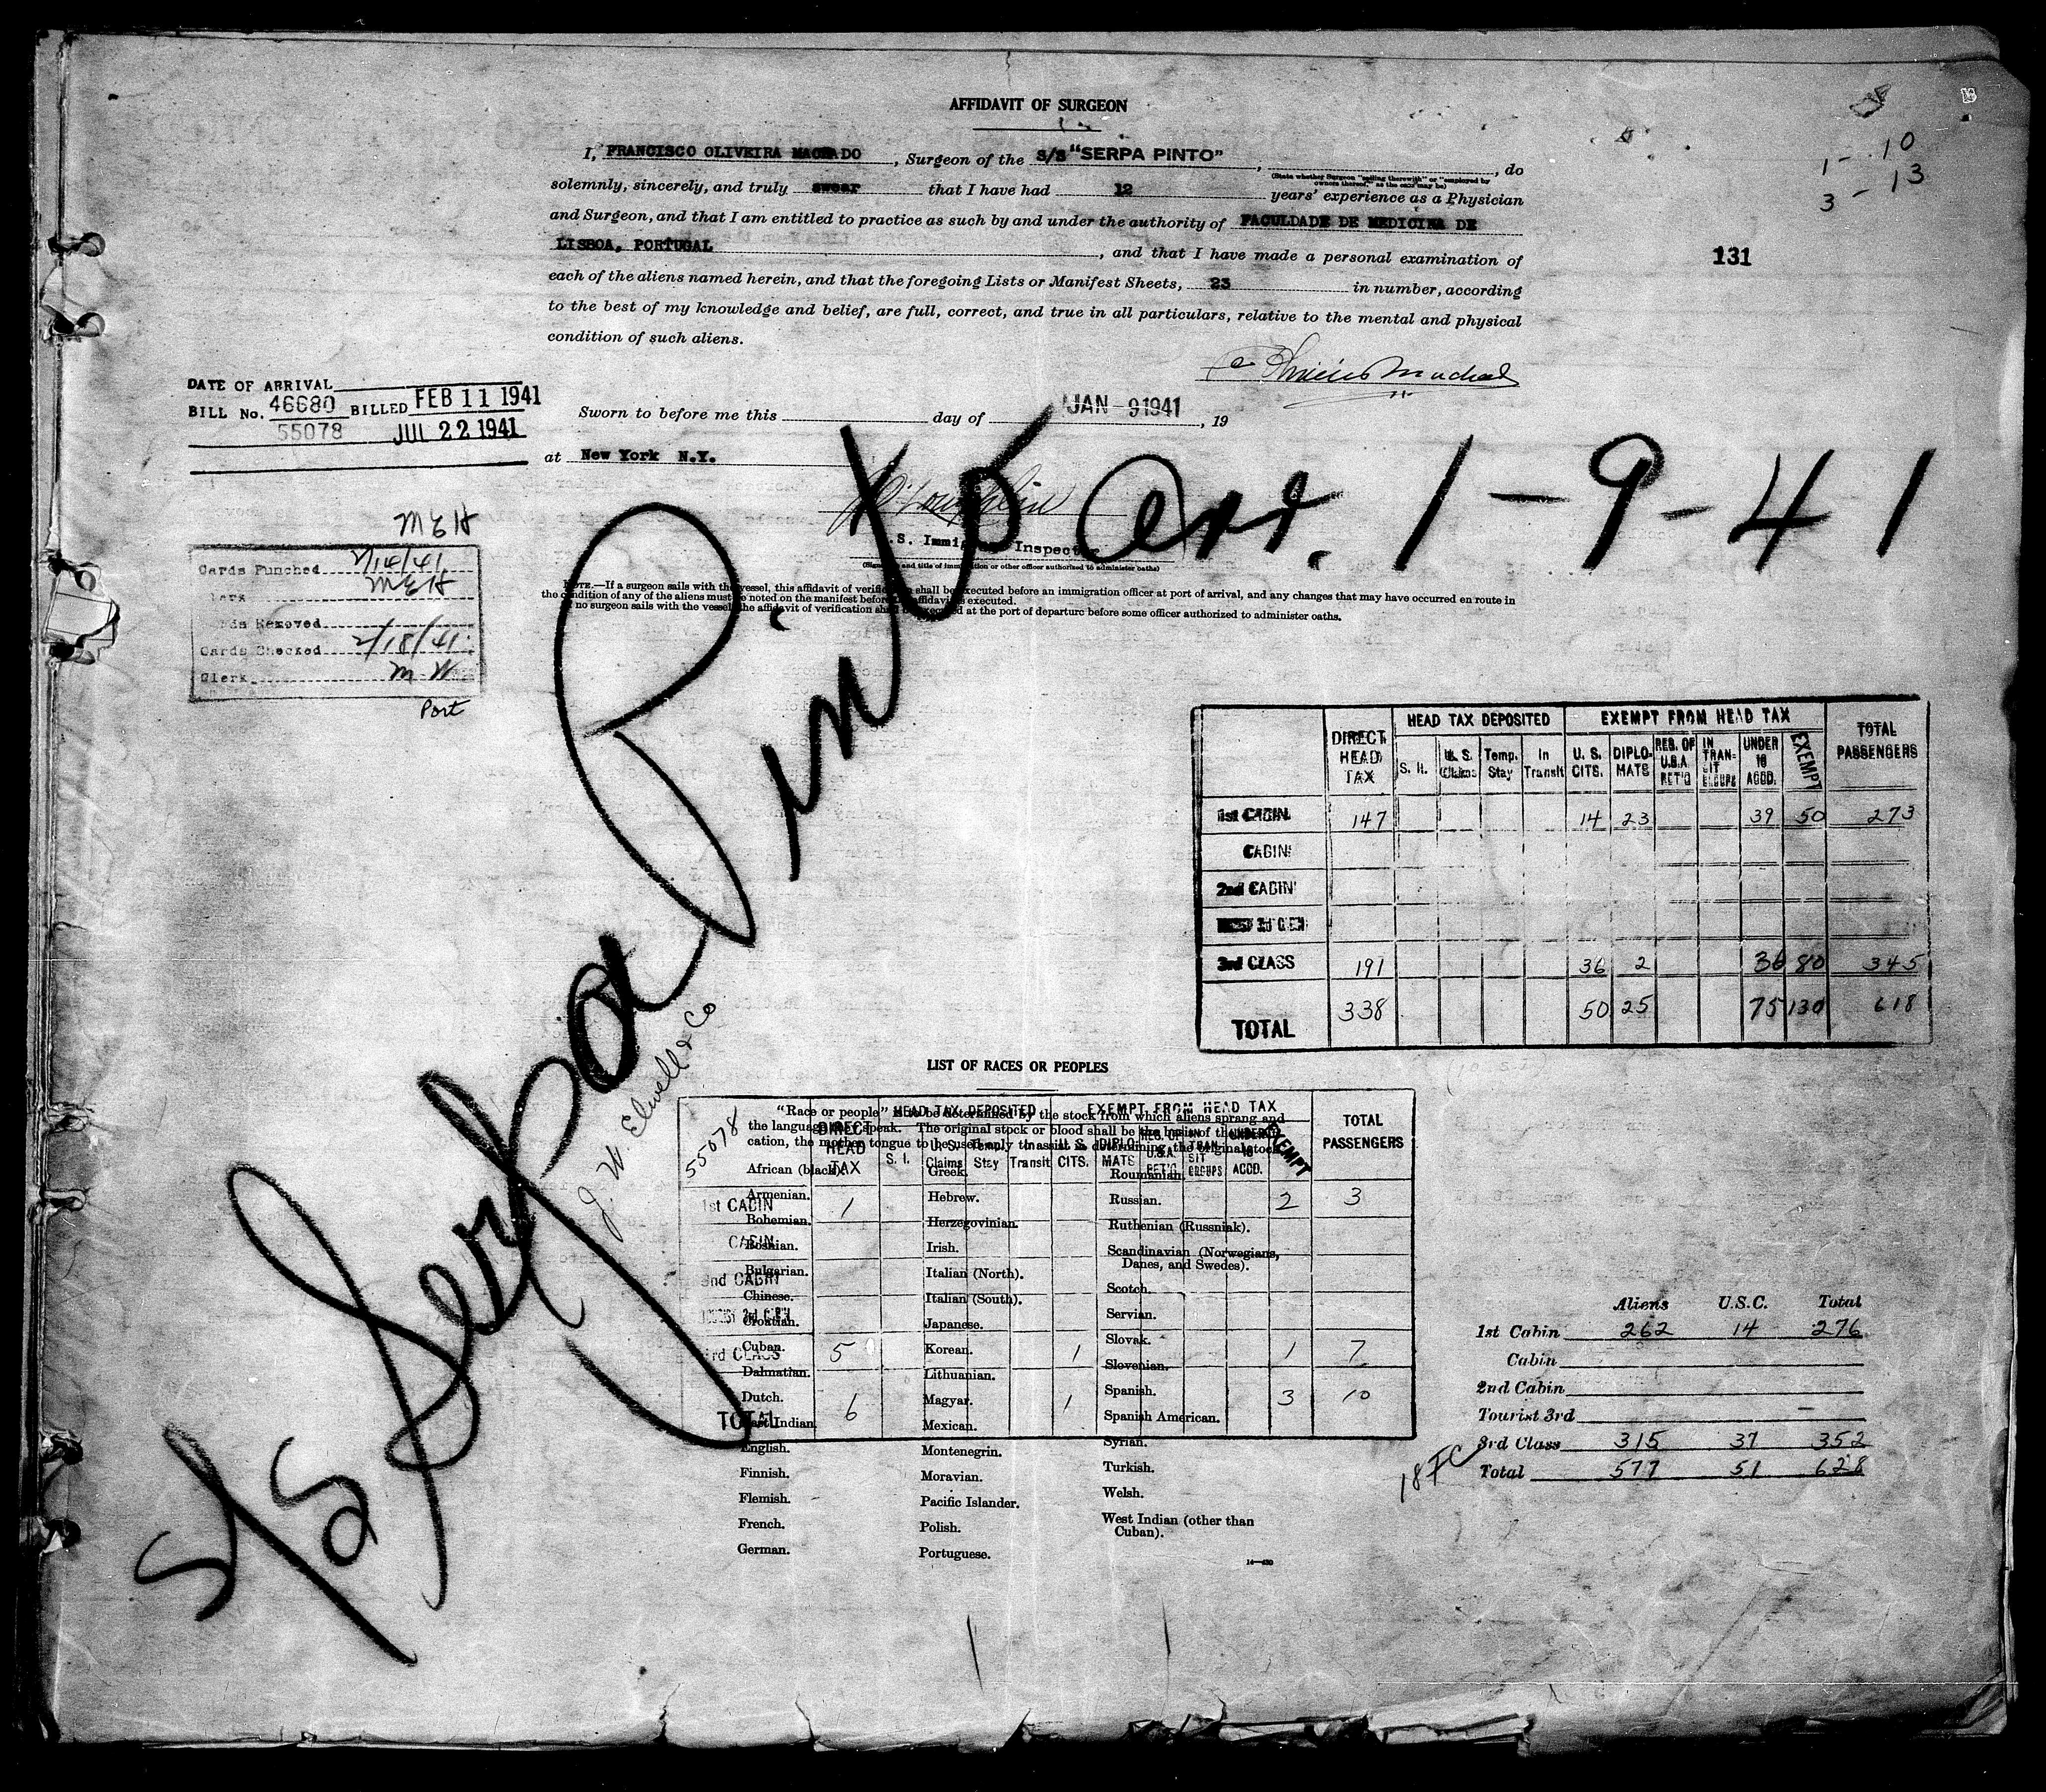 AFFIDAVIT OF SURGEON
I, FRANCISCO OLIVEIRA MACHADO, Surgeon of the S/S "SERPA PINTO", , do
(State whether Surgeon "sailing therewith" or "employed by owners thereof," as the case may be)
solemnly, sincerely, and truly swear that I have had 12 years' experience as a Physician
and Surgeon, and that I am entitled to practice as such by and under the authority of FACULDADE DE MEDICINA DE
LISBOA, PORTUGAL, and that I have made a personal examination of
each of the aliens named herein, and that the foregoing Lists or Manifest Sheets, 23 in number, according
to the best of my knowledge and belief, are full, correct, and true in all particulars, relative to the mental and physical
condition of such aliens.
1 - 10
3 - 13
131
DATE OF ARRIVAL
BILL No. 46680 BILLED FEB 11 1941
55078 JUL 22 1941
Sworn to before me this day of JAN -9 1941, 19
at New York N.Y.
.S. Immig Inspector
(Sign and title of immigration or other officer authorized to administer oaths)
NOTE.—If a surgeon sails with the vessel, this affidavit of verification shall be executed before an immigration officer at port of arrival, and any changes that may have occurred en route in
the condition of any of the aliens must be noted on the manifest before the affidavit is executed.
no surgeon sails with the vessel, the affidavit of verification shall be executed at the port of departure before some officer authorized to administer oaths.
S/S Serpa Pinto arr. 1-9-41
MEH
Cards Punched 2/14/41
MEH
Removed
Cards Checked 2/18/41
Clerk M W
Port
DIRECT HEAD TAX
HEAD TAX DEPOSITED
EXEMPT FROM HEAD TAX
TOTAL PASSENGERS
S. I. U. S. Claims Temp. Stay In Transit U. S. CITS. DIPLOMATS RES. OF U.S.A. RET'G IN TRANSIT GROUPS UNDER 16 ACCD. EXEMPT
1st CABIN 147 14 23 39 50 273
CABIN
2nd CABIN
3rd CLASS 191 36 2 36 80 345
TOTAL 338 50 25 75 130 618
J. W. Elwell & Co
55078
LIST OF RACES OR PEOPLES
"Race or people" is to be determined by the stock from which aliens sprang and
the language they speak. The original stock or blood shall be the basis of the
cation, the mother tongue to be used only to assist in determining the original stock.
HEAD TAX DEPOSITED EXEMPT FROM HEAD TAX TOTAL PASSENGERS
DIRECT HEAD TAX S. I. U. S. Claims Temp. Stay In Transit U. S. CITS. DIPLOMATS RES. OF U.S.A. RET'G IN TRANSIT GROUPS UNDER 16 ACCD. EXEMPT
1st CABIN 1 2 3
CABIN
2nd CABIN
3rd CLASS 5 1 1 7
TOTAL 6 1 3 10
African (black).
Armenian.
Bohemian.
Bosnian.
Bulgarian.
Chinese.
Croatian.
Cuban.
Dalmatian.
Dutch.
East Indian.
English.
Finnish.
Flemish.
French.
German.
Greek.
Hebrew.
Herzegovinian.
Irish.
Italian (North).
Italian (South).
Japanese.
Korean.
Lithuanian.
Magyar.
Mexican.
Montenegrin.
Moravian.
Pacific Islander.
Polish.
Portuguese.
Roumanian.
Russian.
Ruthenian (Russniak).
Scandinavian (Norwegians,
Danes, and Swedes).
Scotch.
Servian.
Slovak.
Slovenian.
Spanish.
Spanish American.
Syrian.
Turkish.
Welsh.
West Indian (other than
Cuban).
Aliens U.S.C. Total
1st Cabin 262 14 276
Cabin
2nd Cabin
Tourist 3rd
3rd Class 315 37 352
Total 577 51 628
18 FC